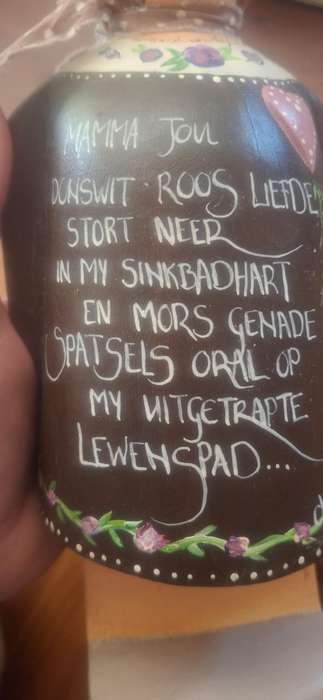 MAMMA JOU
DONSWIT ROOS LIEFDE
STORT NEER
IN MY SINKBADHART
EN MORS GENADE
SPATSELS ORAL OP
MY UITGETRAPTE
LEWENSPAD...